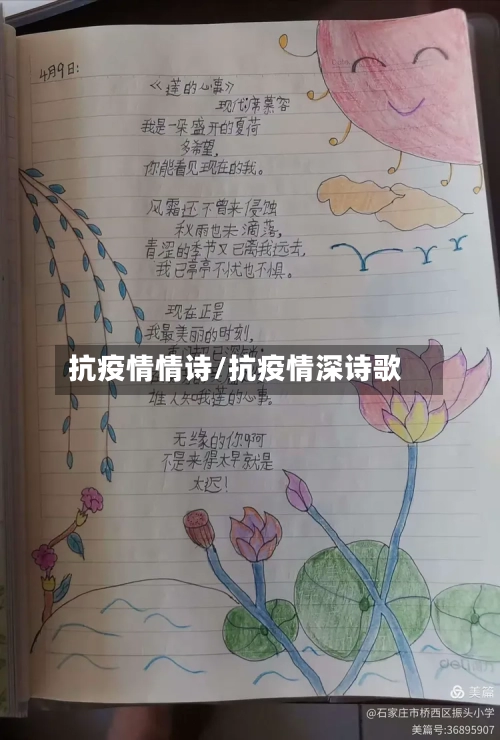 4月9日:
《莲的心事》
现代:席慕容
我是一朵盛开的夏荷
多希望,
你能看见现在的我。
风霜还不曾来侵蚀
秋雨也未滴落,
青涩的季节又已离我远去,
我已亭亭不忧也不惧。
现在正是
我最美丽的时刻,
抗疫情情诗/抗疫情深诗歌
谁人知我莲的心事。
无缘的你啊
不是来得太早就是
太迟!
deli
美篇
@石家庄市桥西区振头小学
美篇号:36895907